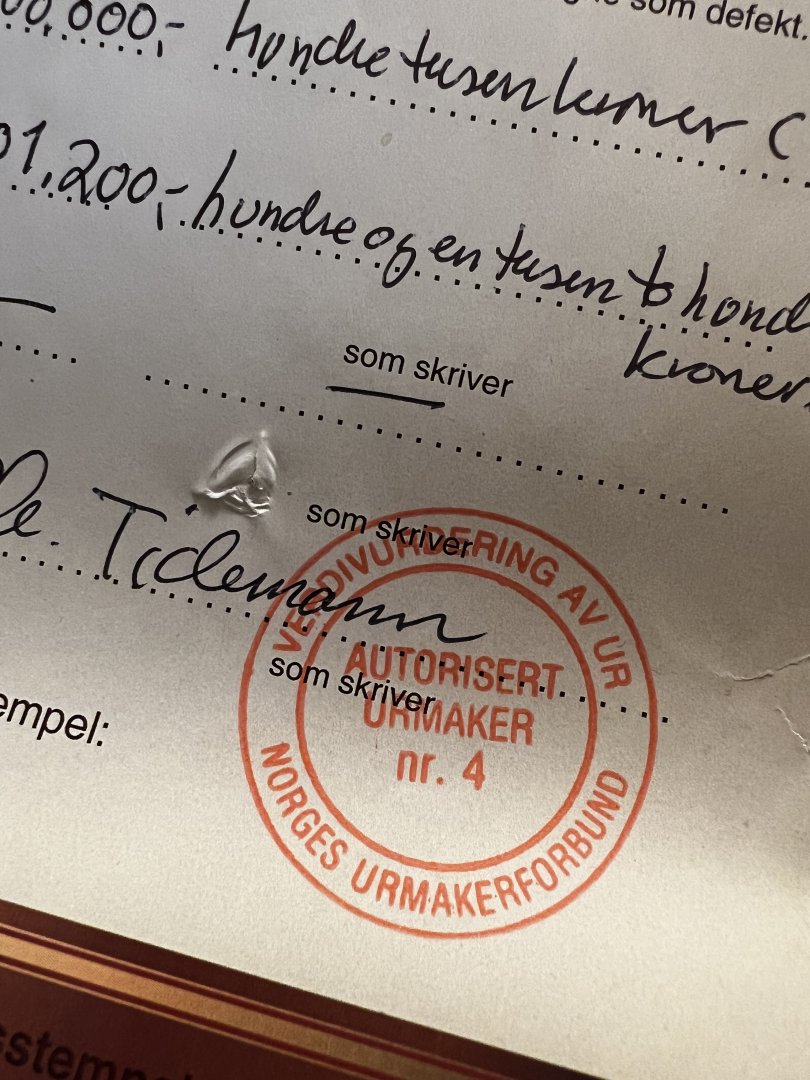 som defekt.
00,000,- hundre tusen kroner (
01,200,- hundre og en tusen to hund
kroner.
som skriver
som skriver
Tidemann
som skriver
empel:
VERDIVURDERING AV UR
AUTORISERT
URMAKER
nr. 4
NORGES URMAKERFORBUND
sstempel